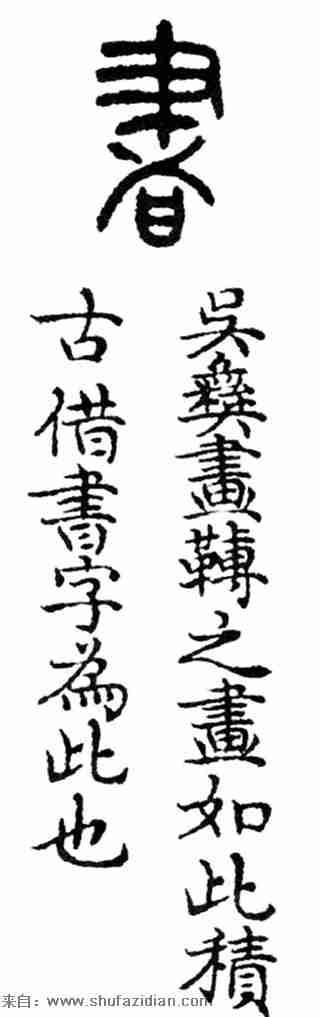 書
吳彝畫轉之畫如此積
古借書字為此也
来自：www.shufazidian.com